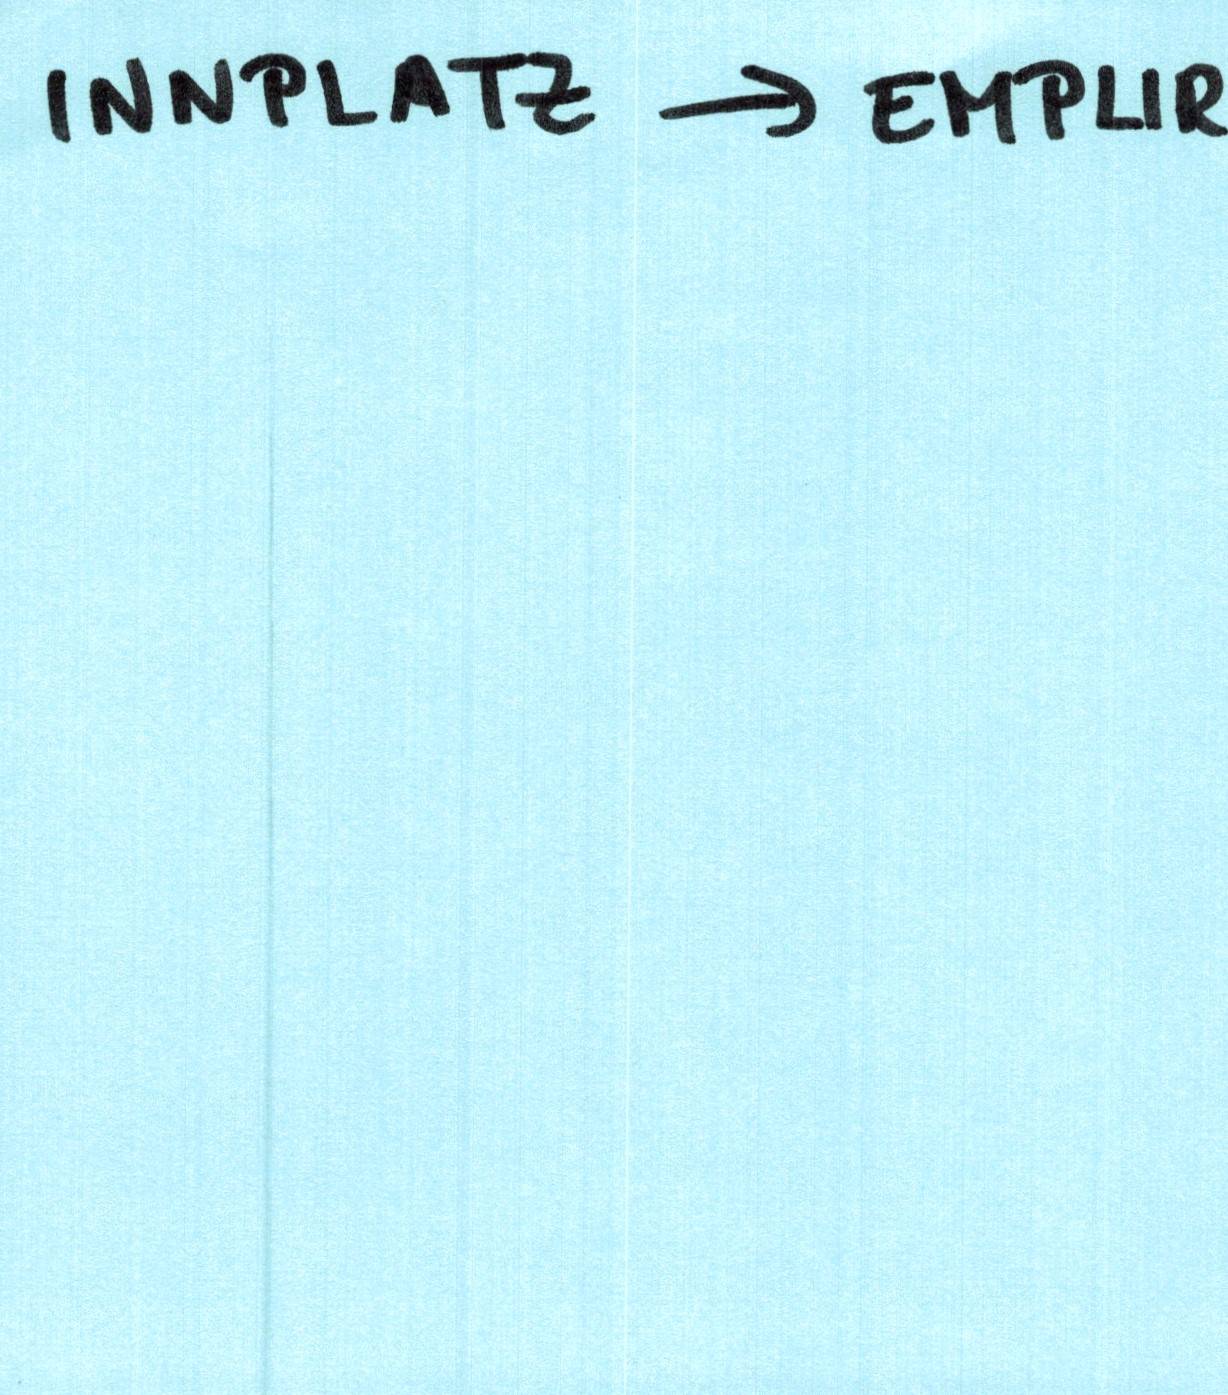 INNPLATZ → EMPLIR